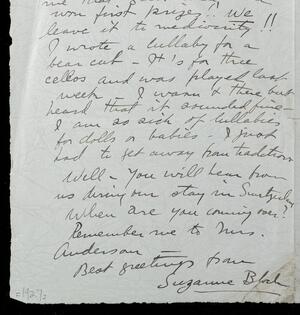 won first prize!! We
leave it to mediocrity!!
I wrote a lullaby for a
bear cub - It is for three
cellos and was played last
week - I wasn't there but
heard that it sounded fine -
I am so sick of lullabies
for dolls or babies. I just
had to get away from tradition
Well - You will hear from
us during our stay in Switzerland
When are you coming over?
Remember me to Mrs.
Anderson
Best greetings from
Suzanne Bloch